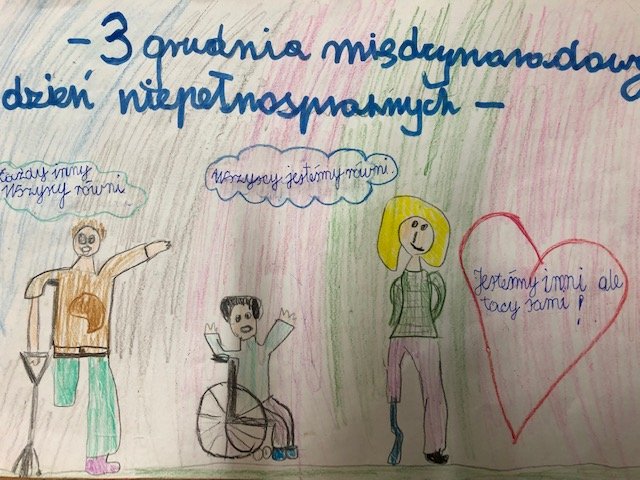 - 3 grudnia międzynarodowy
dzień niepełnosprawnych -
Każdy inny
Wszyscy równi
Wszyscy jesteśmy równi.
Jesteśmy inni ale
tacy sami!